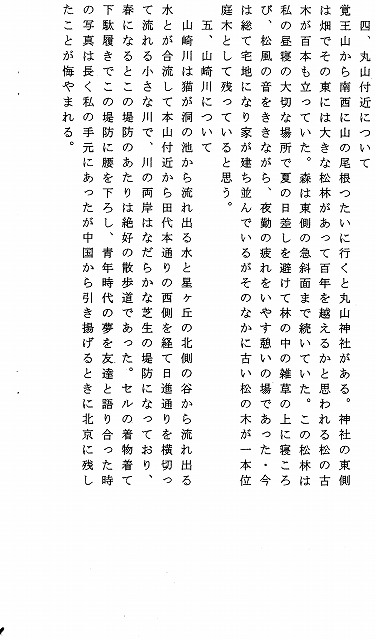 四、丸山付近について
覚王山から南西に山の尾根つたいに行くと丸山神社がある。神社の東側
は畑でその東には大きな松林があって百年を越えるかと思われる松の古
木が百本も立っていた。森は東側の急斜面まで続いていた。この松林は
私の昼寝の大切な場所で夏の日差しを避けて林の中の雑草の上に寝ころ
び、松風の音をききながら、夜勤の疲れをいやす憩いの場であった・今
は総て宅地になり家が建ち並んでいるがそのなかに古い松の木が一本位
庭木として残っていると思う。
五、山崎川について
山崎川は猫が洞の池から流れ出る水と星ヶ丘の北側の谷から流れ出る
水とが合流して本山付近から田代本通りの西側を経て日進通りを横切っ
て流れる小さな川で、川の両岸はなだらかな芝生の堤防になっており、
春になるとこの堤防のあたりは絶好の散歩道であった。セルの着物着て
下駄履きでこの堤防に腰を下ろし、青年時代の夢を友達と語り合った時
の写真は長く私の手元にあったが中国から引き揚げるときに北京に残し
たことが悔やまれる。